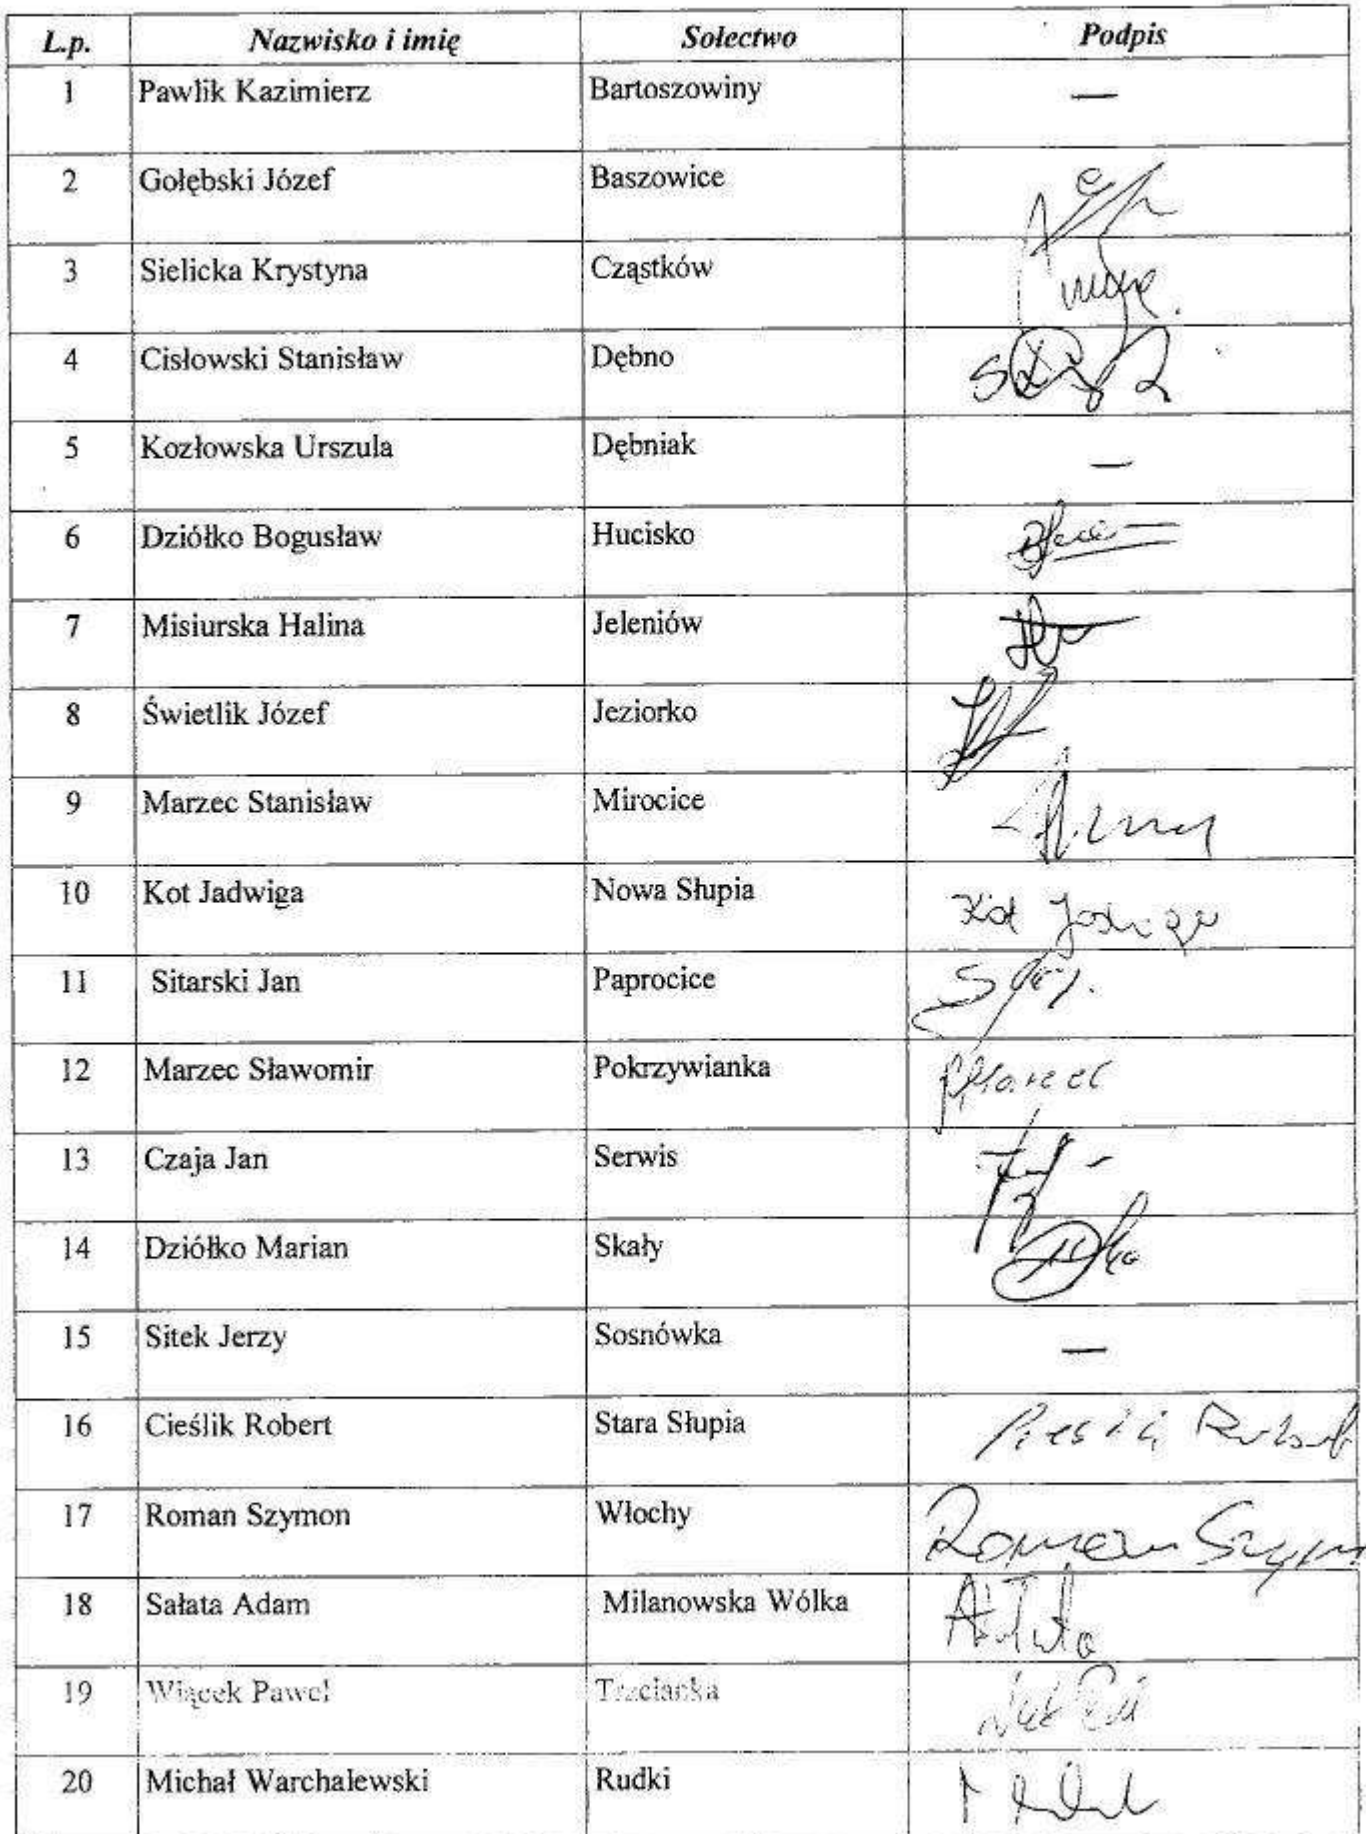 L.p. Nazwisko i imię Sołectwo Podpis
1 Pawlik Kazimierz Bartoszowiny —
2 Gołębski Józef Baszowice
3 Sielicka Krystyna Cząstków
4 Cisłowski Stanisław Dębno
5 Kozłowska Urszula Dębniak —
6 Dziółko Bogusław Hucisko
7 Misiurska Halina Jeleniów
8 Świetlik Józef Jeziorko
9 Marzec Stanisław Mirocice
10 Kot Jadwiga Nowa Słupia Kot Jadwiga
11 Sitarski Jan Paprocice
12 Marzec Sławomir Pokrzywianka
13 Czaja Jan Serwis
14 Dziółko Marian Skały
15 Sitek Jerzy Sosnówka —
16 Cieślik Robert Stara Słupia Cieślik Robert
17 Roman Szymon Włochy Roman Szym
18 Sałata Adam Milanowska Wólka
19 Wiącek Paweł Trzcianka
20 Michał Warchalewski Rudki